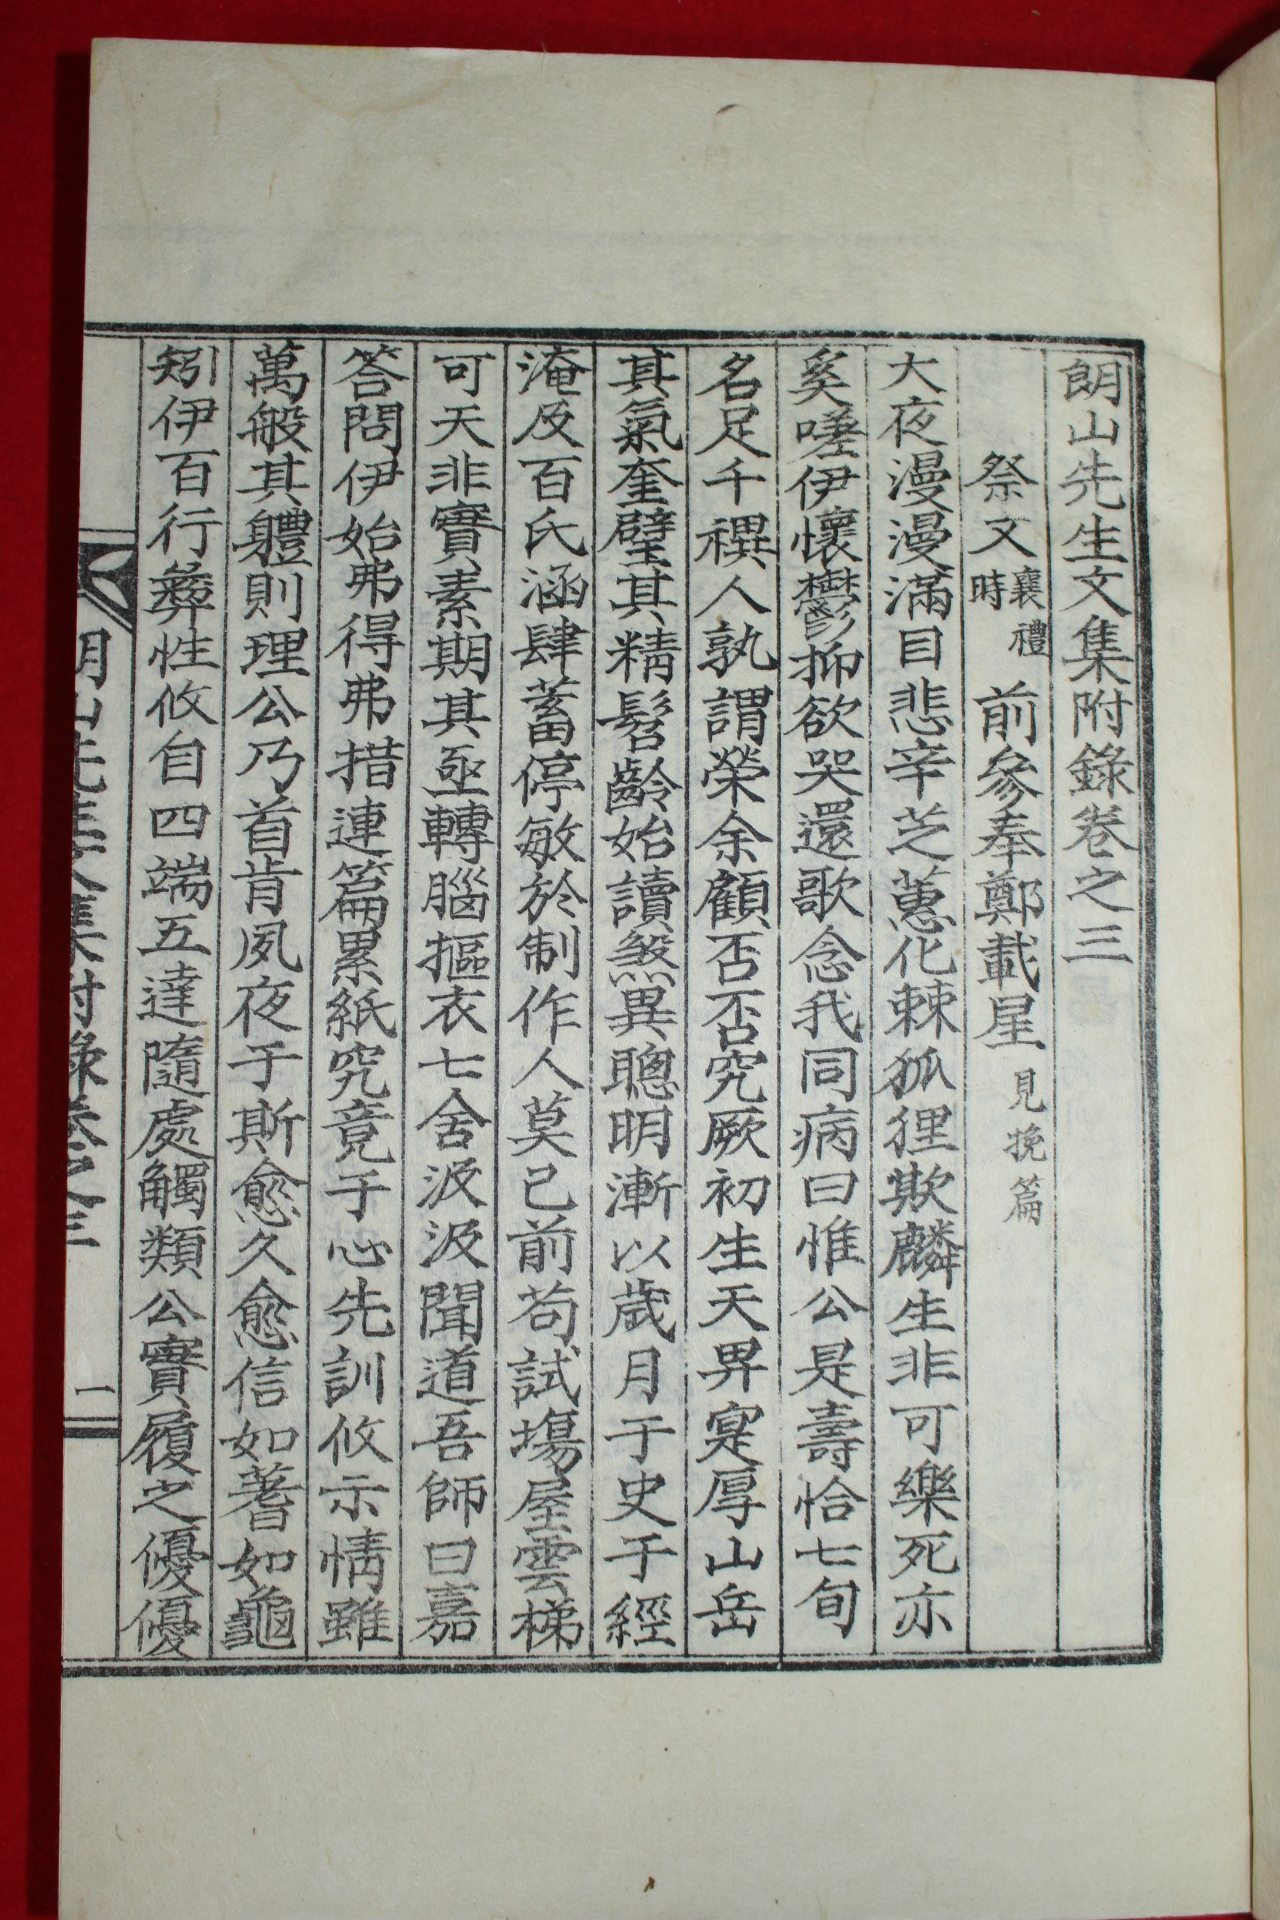 朗山先生文集附錄卷之三
祭文 襄禮時 前參奉鄭載星 見挽篇
大夜漫漫滿目悲辛芝蕙化棘狐狸欺麟生非可樂死亦
奚嗟伊懷鬱抑欲哭還歌念我同病曰惟公是壽恰七旬
名足千禩人孰謂榮余顧否否究厥初生天畀寔厚山岳
其氣奎璧其精髫齡始讀煞異聰明漸以歲月于史于經
淹及百氏涵肆蓄停敏於制作人莫己前苟試場屋雲梯
可天非實素期其亟轉腦摳衣七舍汲汲聞道吾師曰嘉
答問伊始弗得弗措連篇累紙究竟于心先訓攸示情雖
萬般其軆則理公乃首肯夙夜于斯愈久愈信如蓍如龜
矧伊百行彝性攸自四端五達隨處觸類公實履之優優
朗山先生文集附錄卷之三 一